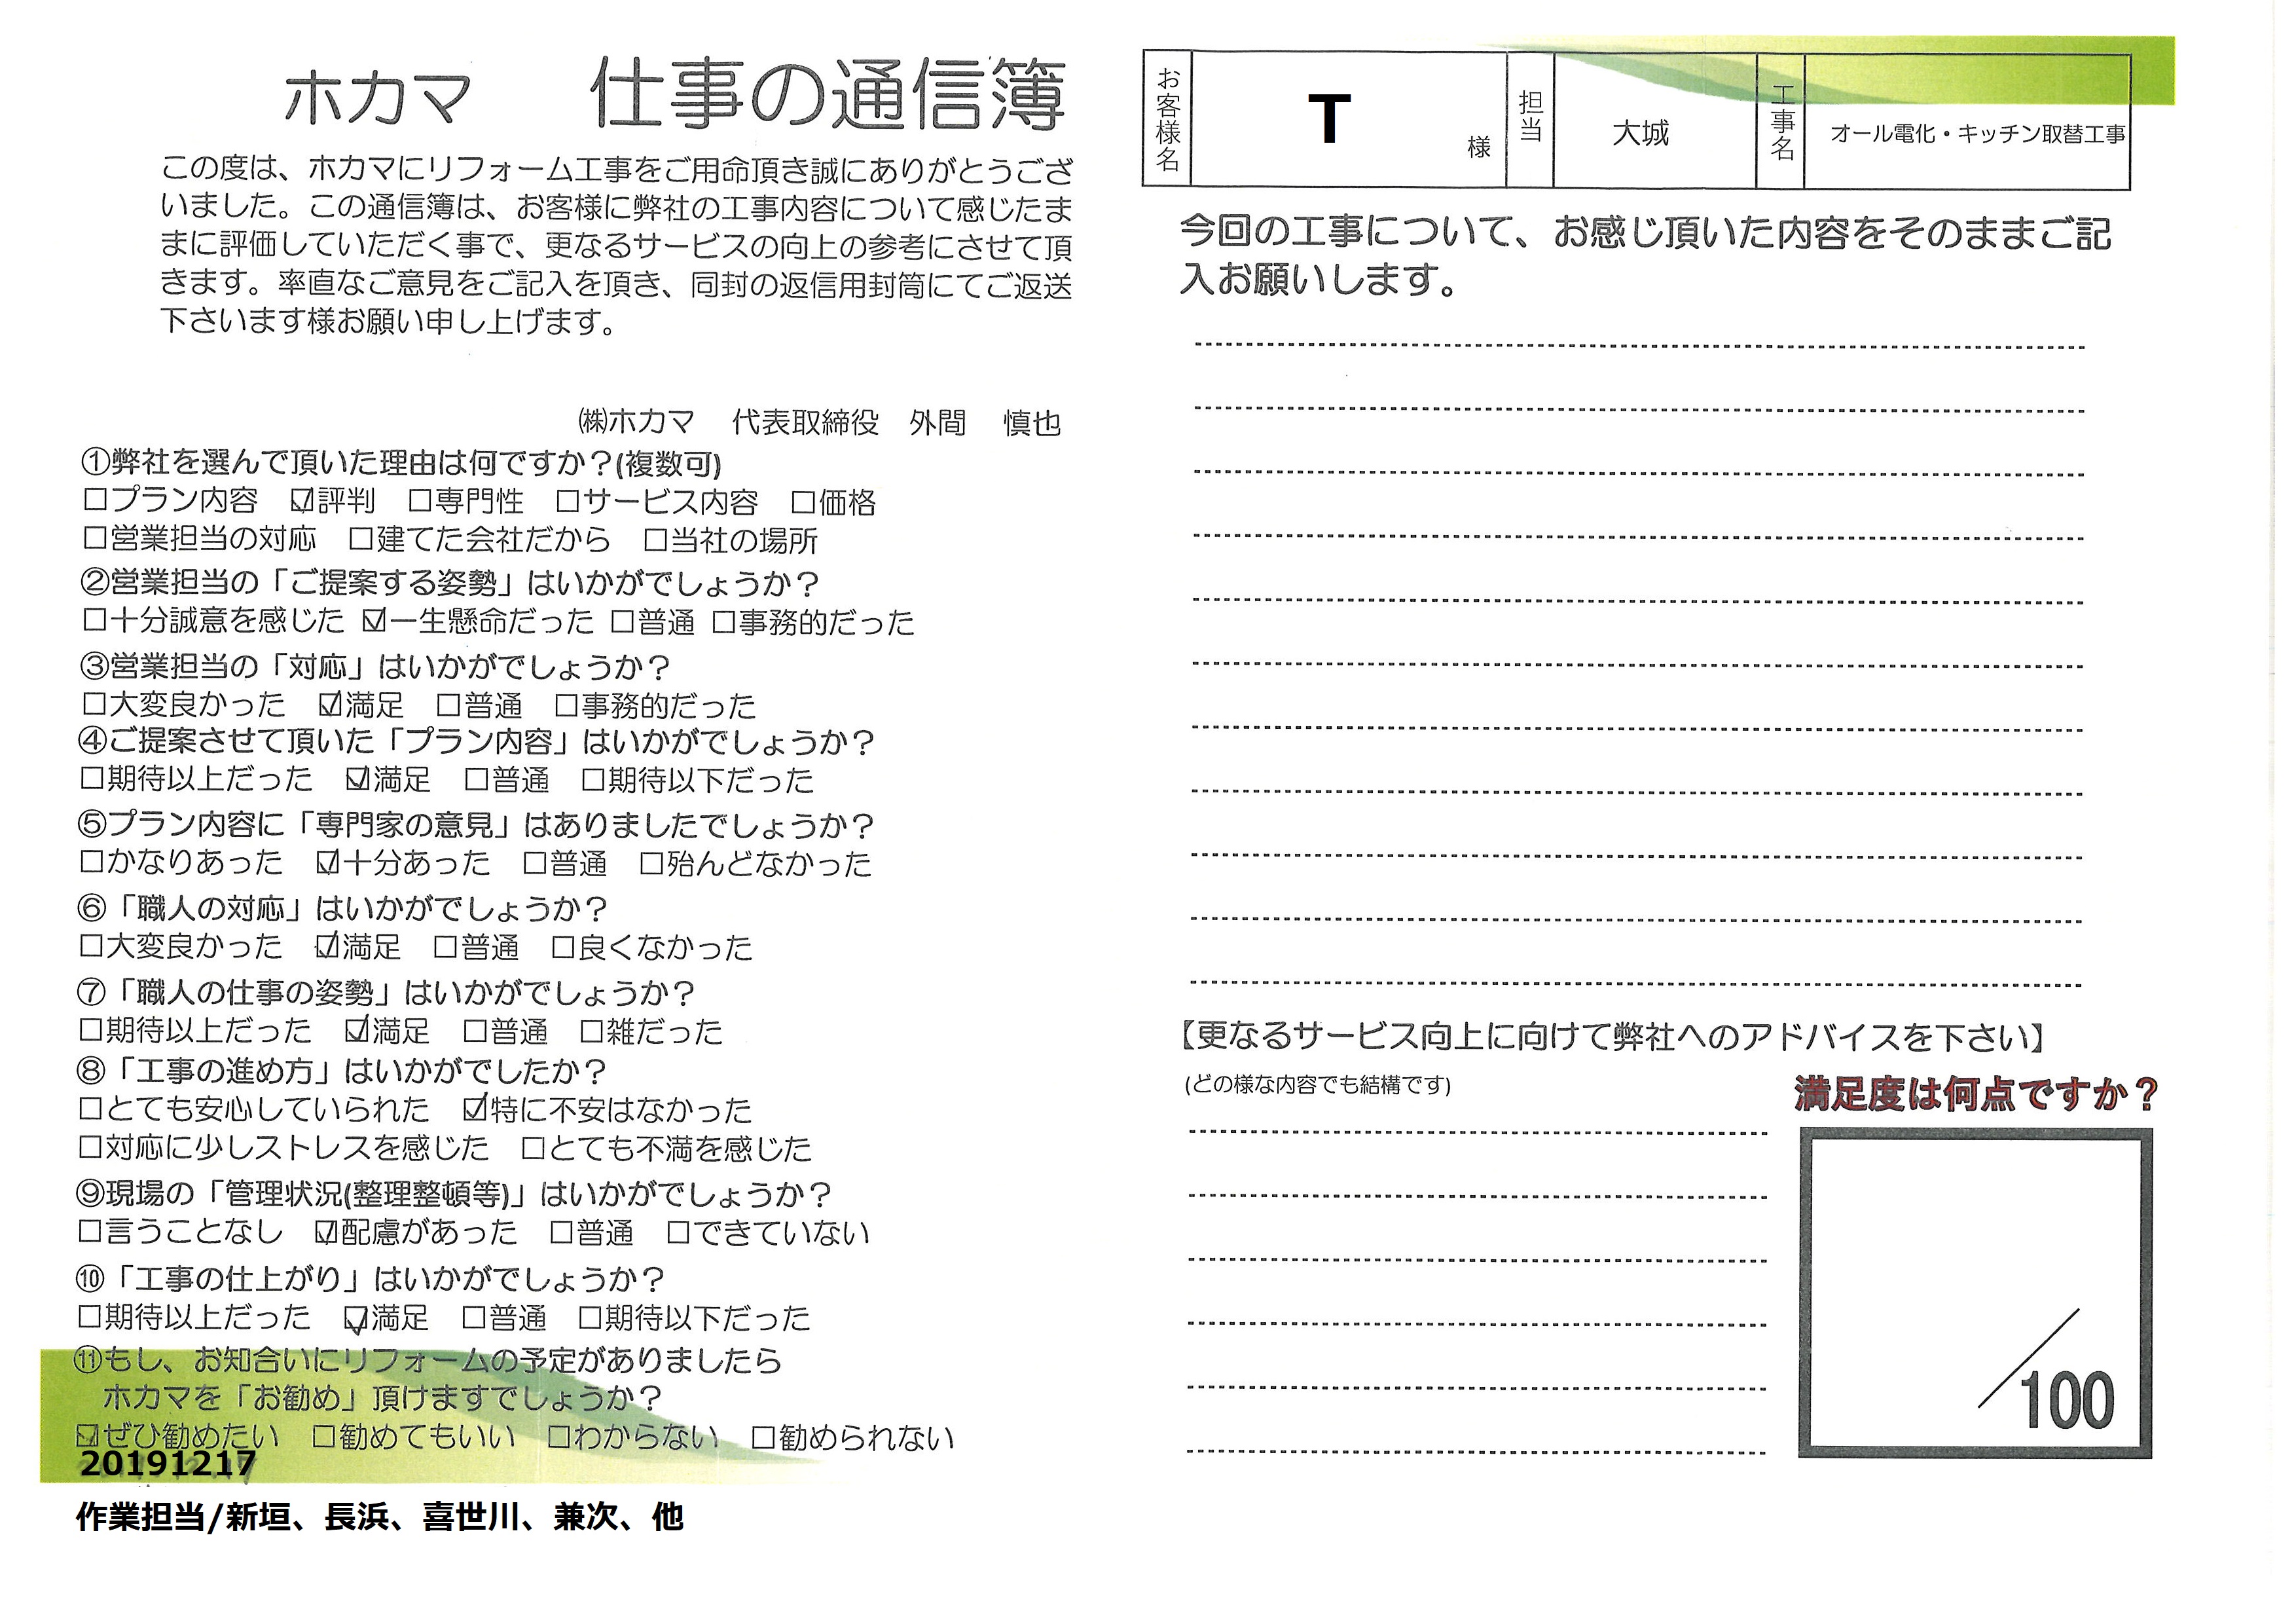 ホカマ　仕事の通信簿
この度は、ホカマにリフォーム工事をご用命頂き誠にありがとうござ
いました。この通信簿は、お客様に弊社の工事内容について感じたま
まに評価していただく事で、更なるサービスの向上の参考にさせて頂
きます。率直なご意見をご記入を頂き、同封の返信用封筒にてご返送
下さいます様お願い申し上げます。
㈱ホカマ　代表取締役　外間　慎也
①弊社を選んで頂いた理由は何ですか？(複数可)
□プラン内容　☑評判　□専門性　□サービス内容　□価格
□営業担当の対応　□建てた会社だから　□当社の場所
②営業担当の「ご提案する姿勢」はいかがでしょうか？
□十分誠意を感じた　☑一生懸命だった　□普通　□事務的だった
③営業担当の「対応」はいかがでしょうか？
□大変良かった　☑満足　□普通　□事務的だった
④ご提案させて頂いた「プラン内容」はいかがでしょうか？
□期待以上だった　☑満足　□普通　□期待以下だった
⑤プラン内容に「専門家の意見」はありましたでしょうか？
□かなりあった　☑十分あった　□普通　□殆んどなかった
⑥「職人の対応」はいかがでしょうか？
□大変良かった　☑満足　□普通　□良くなかった
⑦「職人の仕事の姿勢」はいかがでしょうか？
□期待以上だった　☑満足　□普通　□雑だった
⑧「工事の進め方」はいかがでしたか？
□とても安心していられた　☑特に不安はなかった
□対応に少しストレスを感じた　□とても不満を感じた
⑨現場の「管理状況(整理整頓等)」はいかがでしょうか？
□言うことなし　☑配慮があった　□普通　□できていない
⑩「工事の仕上がり」はいかがでしょうか？
□期待以上だった　☑満足　□普通　□期待以下だった
⑪もし、お知合いにリフォームの予定がありましたら
ホカマを「お勧め」頂けますでしょうか？
☑ぜひ勧めたい　□勧めてもいい　□わからない　□勧められない
20191217
作業担当/新垣、長浜、喜世川、兼次、他
お客様名　T　様　担当　大城　工事名　オール電化・キッチン取替工事
今回の工事について、お感じ頂いた内容をそのままご記
入お願いします。
【更なるサービス向上に向けて弊社へのアドバイスを下さい】
(どの様な内容でも結構です)
満足度は何点ですか？
／100